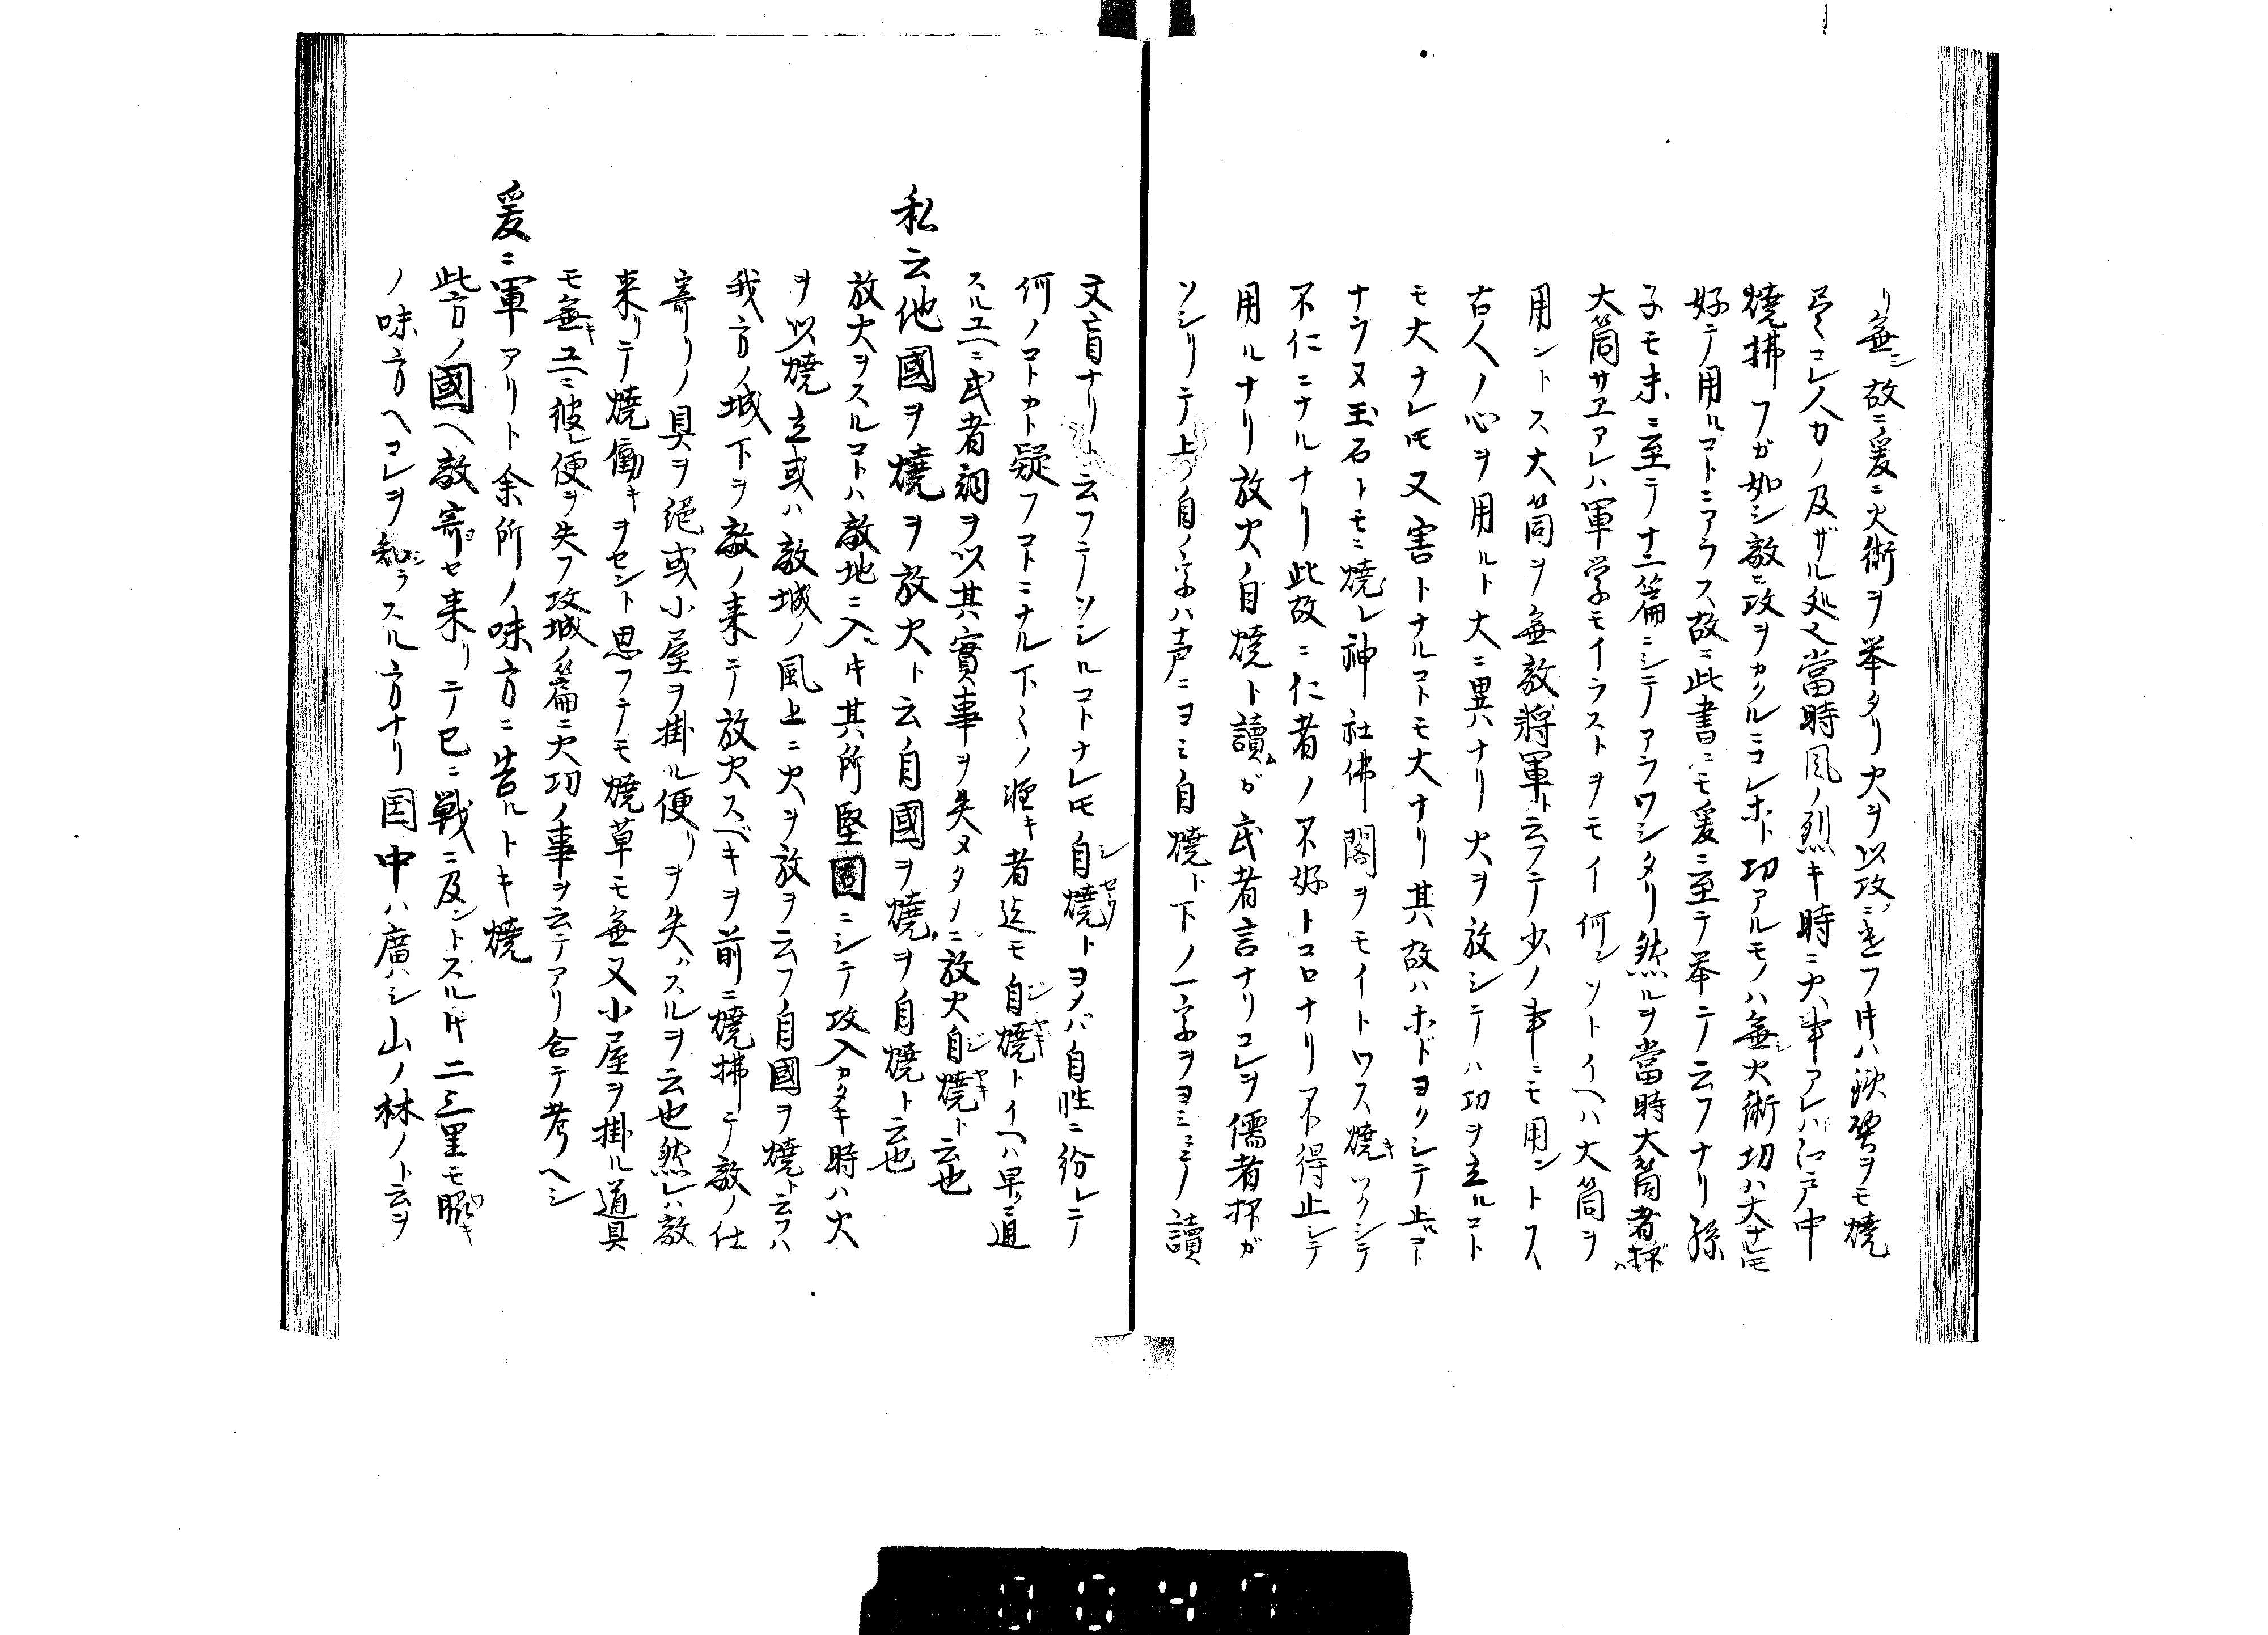 リ無シ故ニ爰ニ火術ヲ挙タリ火ヲ以攻ニ逢フ件ハ鉄壁ヲモ焼
尽コレ人力ノ及ザル処也當時風ノ烈キ時ニ火事アレハ江戸中
焼拂フガ如シ敵ニ攻ヲカクルニコレホト功アルモノハ無シ火術切ハ大ナレ𪜈
好テ用ルコトニアラス故ニ此書ニモ爰ニ至テ挙テ云フナリ孫
子モ末ニ至テ十二篇ニシテアラワシタリ然ルヲ當時大筒者抔ハ
大筒サヱアレハ軍学モイラストヲモイ何ソトイヘハ大筒ヲ
用ントス大筒ヲ無敵将軍ト云フテ少ノ事ニモ用ントス
古人ノ心ヲ用ルト大ニ異ハナリ火ヲ放シテハ功ヲ立ルコト
モ大ナレ𪜈又害トナルコトモ大ナリ其故ハホドヨクシテ止ルコト
ナラヌ玉石トモニ焼レ神社佛閣ヲモイトワス焼キツクシテ
不仁ニナルナリ此故ニ仁者ノ不好トコロナリ不得止シテ
用ルナリ放火ノ自焼ト讀ムガ武者言ナリコレヲ儒者抔ガ
ソシリテ上ノ自ノ字ハ声ニヨミ自焼ト下ノ一字ヲヨミニテ讀
文盲ナリト云フテソシルコトナレ𪜈自焼シセウトヨメバ自性ニ紛レテ
何ノコトカト疑フコトニナル下〻ノ軽キ者迄モ自焼ジヤキトイヘハ早ク通
スルユヘニ武者詞ヲ以其實事ヲ失ヌタメニ放火自焼ジヤキト云也
私云他國ヲ焼ヲ放火ト云自國ヲ焼ヲ自焼ト云也
放火ヲスルコトハ敵地ニ入ル件其所堅固ニシテ攻入カタキ時ハ火
ヲ以焼立或ハ敵城ノ風上ニ火ヲ放ヲ云フ自國ヲ焼ト云フハ
我方ノ城下ヲ敵ノ来テ放火スベキヲ前ニ焼拂テ敵ノ仕
寄リノ具ヲ絶或小屋ヲ掛ル便リヲ失ハスルヲ云也然レハ敵
来リテ焼働キヲセント思フテモ焼草モ無又小屋ヲ掛ル道具
モ無キユヘニ彼レ便ヲ失フ攻城ノ篇ニ火功ノ事ヲ云テアリ合テ考ヘシ
爰ニ軍アリト余所ノ味方ニ告ルトキ焼
此方ノ國ヘ敵寄ヨセ来リテ已ニ戦ニ及ントスル件二三里モ脇ワキ
ノ味方ヘコレヲ知シラスル方ナリ国中ハ廣ハシ山ノ林ノト云ヲ